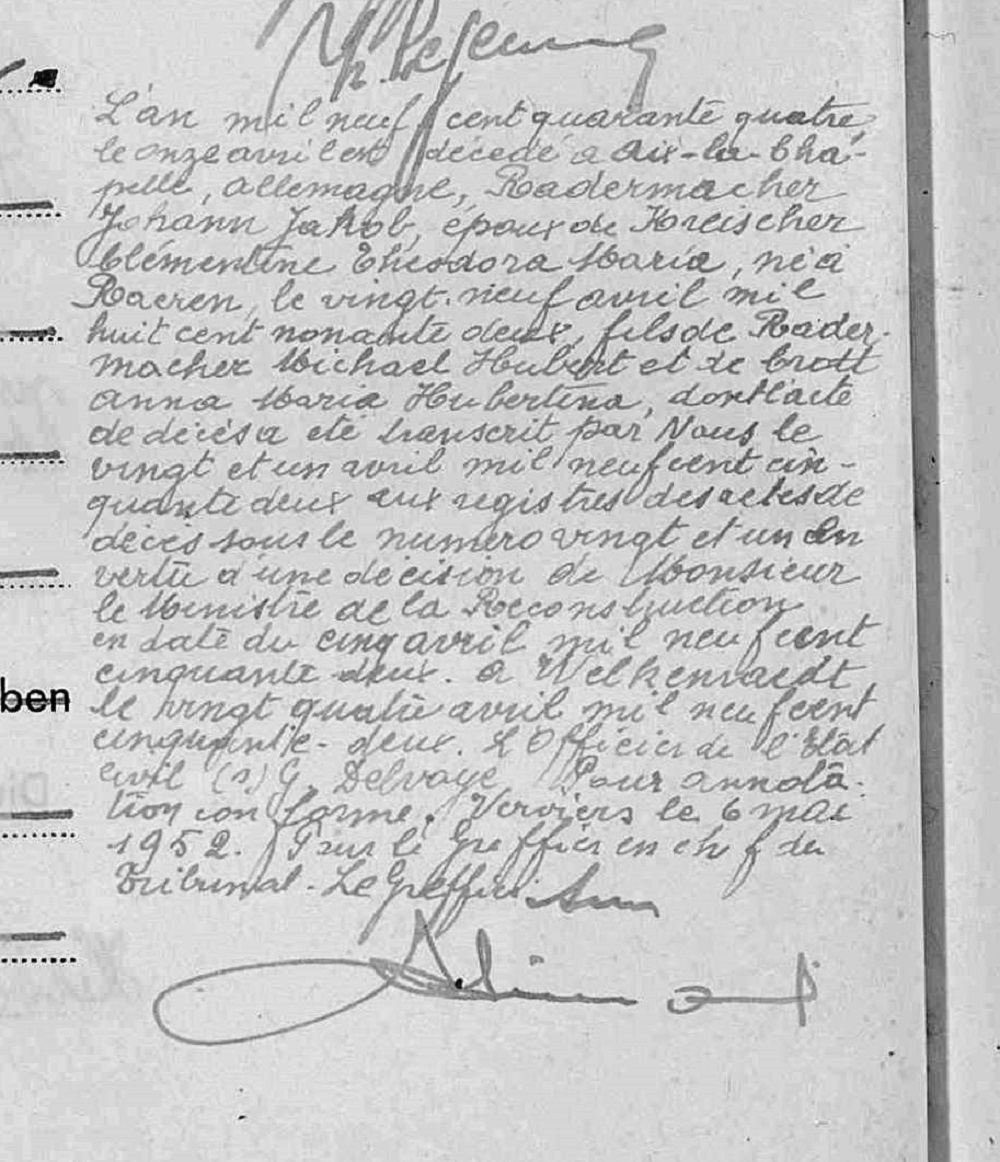 L'an mil neuf cent quarante quatre,
le onze avril est décédé à Aix-la-Cha-
pelle, Allemagne, Radermacher
Johann Jakob, époux de Kreischer
Clémentine Theodora Maria, né à
Raeren, le vingt-neuf avril mil
huit cent nonante deux, fils de Rader-
macher Michael Hubert et de Crott
Anna Maria Hubertina, dont l'acte
de décès a été transcrit par Nous le
vingt et un avril mil neuf cent cin-
quante deux aux registres des actes de
décès sous le numéro vingt et un en
vertu d'une décision de Monsieur
le Ministre de la Reconstruction
en date du cinq avril mil neuf cent
cinquante deux. A Welkenraedt,
ben
le vingt quatre avril mil neuf cent
cinquante-deux. L'Officier de l'Etat
civil (s) G. Delvoye Pour annota-
tion conforme. Verviers le 6 mai
1952. Pour le Greffier en chef du
Tribunal - Le Greffier